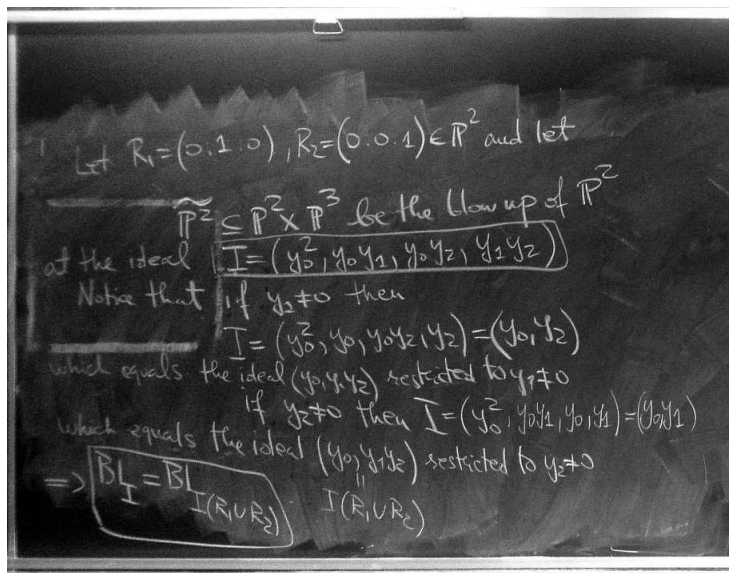 Let R₁=(0:1:0), R₂=(0:0:1)∈ℙ² and let
ℙ̃² ⊆ ℙ²×ℙ³ be the blow up of ℙ²
at the ideal I=(y₀², y₀y₁, y₀y₂, y₁y₂)
Notice that if y₁≠0 then
I=(y₀², y₀, y₀y₂, y₂)=(y₀,y₂)
which equals the ideal (y₀,y₁y₂) restricted to y₁≠0
if y₂≠0 then I=(y₀², y₀y₁, y₀, y₁)=(y₀,y₁)
which equals the ideal (y₀,y₁y₂) restricted to y₂≠0
=> BL_I = BL_{I(R₁∪R₂)} || I(R₁∪R₂)